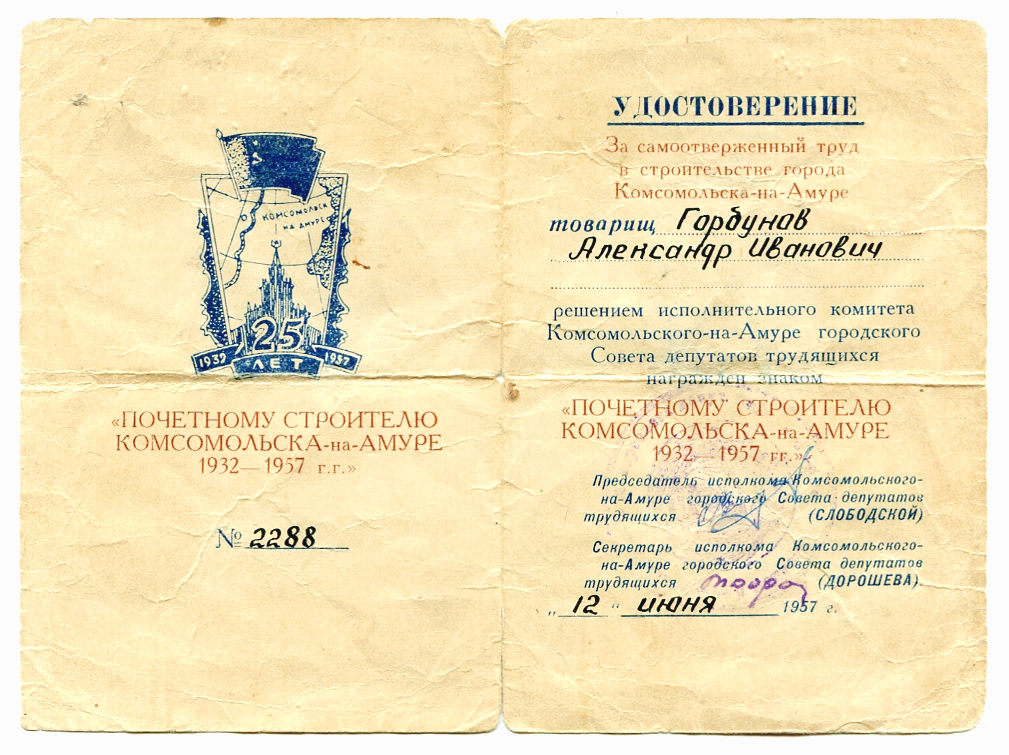 КОМСОМОЛЬСК
НА АМУРЕ
25
1932 ЛЕТ 1957
«ПОЧЕТНОМУ СТРОИТЕЛЮ
КОМСОМОЛЬСКА-на-АМУРЕ
1932—1957 г.г.»
№ 2288
УДОСТОВЕРЕНИЕ
За самоотверженный труд
в строительстве города
Комсомольска-на-Амуре
товарищ Горбунов
Александр Иванович
решением исполнительного комитета
Комсомольского-на-Амуре городского
Совета депутатов трудящихся
награжден знаком
«ПОЧЕТНОМУ СТРОИТЕЛЮ
КОМСОМОЛЬСКА-на-АМУРЕ
1932—1957 гг.»
Председатель исполкома Комсомольского-
на-Амуре городского Совета депутатов
трудящихся (СЛОБОДСКОЙ)
Секретарь исполкома Комсомольского-
на-Амуре городского Совета депутатов
трудящихся (ДОРОШЕВА)
„12“ июня 1957 г.